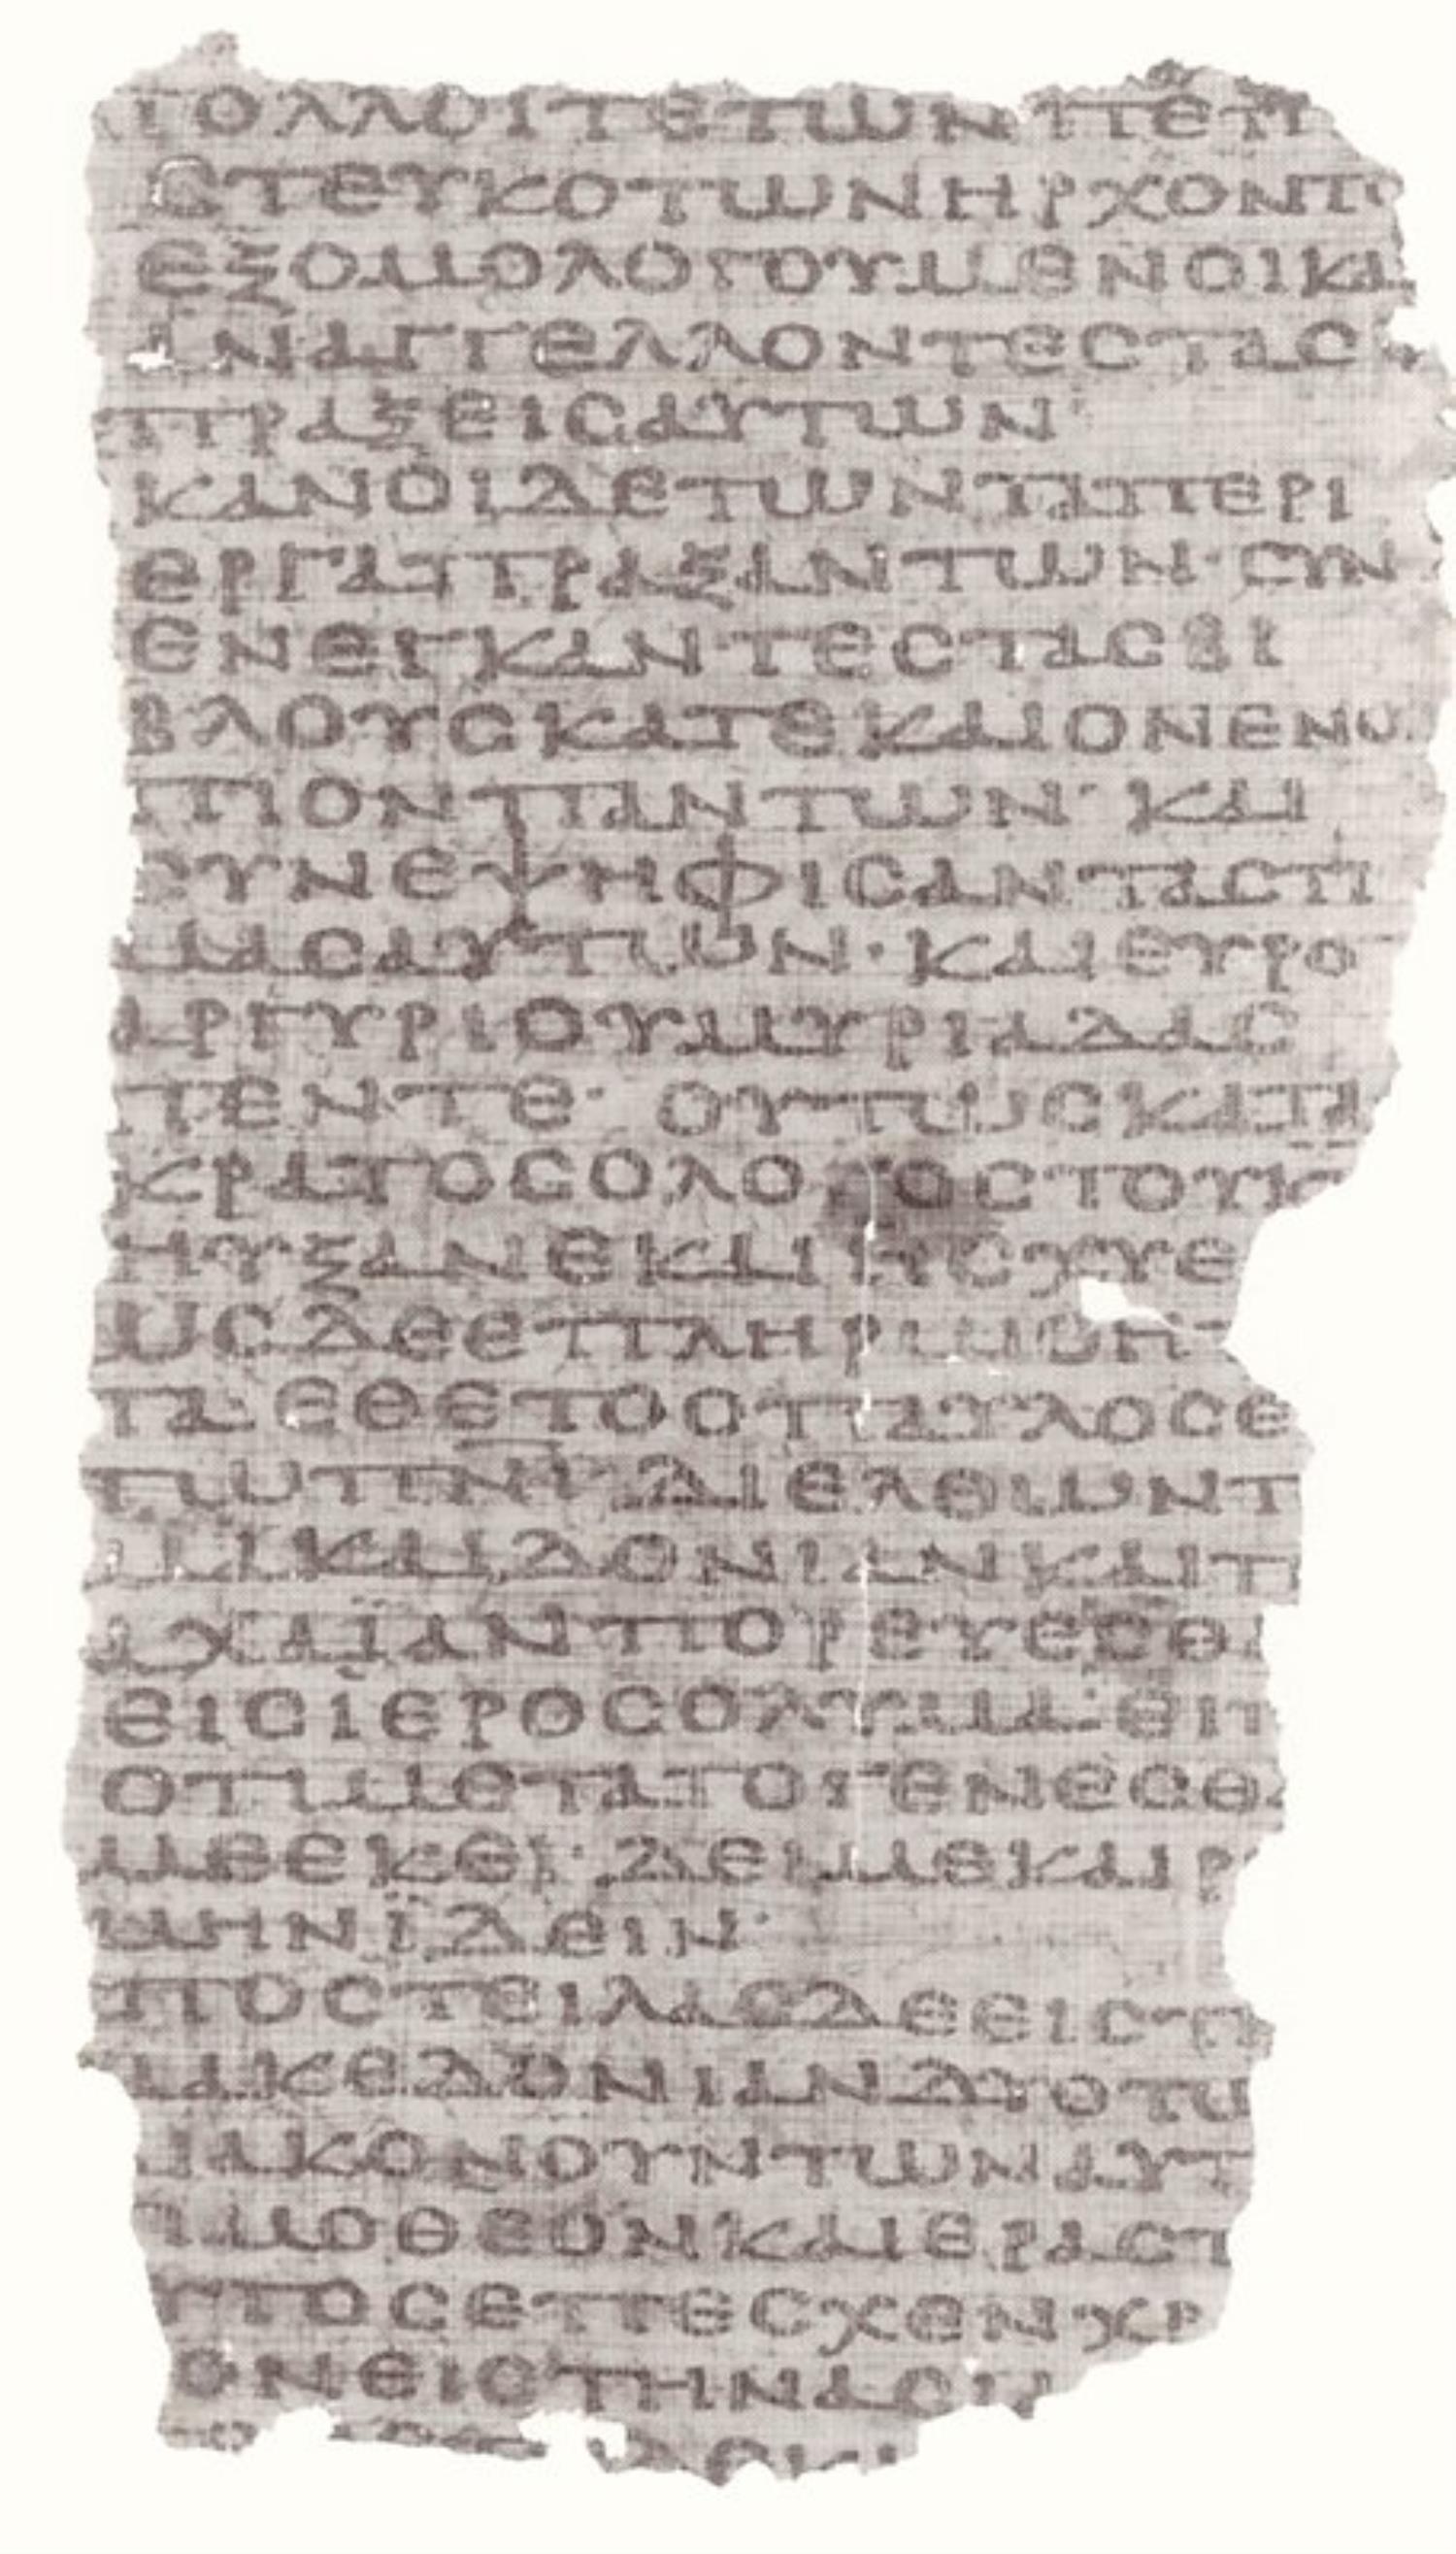 ΠΟΛΛΟΙΤΕΤΩΝΠΕΠΙ
CΤΕΥΚΟΤΩΝΗΡΧΟΝΤΟ
ΕΞΟΜΟΛΟΓΟΥΜΕΝΟΙΚΑ
ΑΝΑΓΓΕΛΛΟΝΤΕCΤΑC
ΠΡΑΞΕΙCΑΥΤΩΝ·
ΙΚΑΝΟΙΔΕΤΩΝΤΑΠΕΡΙ
ΕΡΓΑΠΡΑΞΑΝΤΩΝ·CΥΝ
ΕΝΕΓΚΑΝΤΕCΤΑCΒΙ
ΒΛΟΥCΚΑΤΕΚΑΙΟΝΕΝΩ
ΠΙΟΝΠΑΝΤΩΝ· ΚΑΙ
CΥΝΕΨΗΦΙCΑΝΤΑCΤΙ
ΜΑCΑΥΤΩΝ·ΚΑΙΕΥΡΟ
ΑΡΓΥΡΙΟΥΜΥΡΙΑΔΑC
ΠΕΝΤΕ· ΟΥΤΩCΚΑΤΑ
ΚΡΑΤΟCΟΛΟΓΟCΤΟΥΚ
ΗΥΞΑΝΕΚΑΙΙCΧΥΕ
ΩCΔΕΕΠΛΗΡΩΘΗ
ΤΑ ΕΘΕΤΟΟΠΑΥΛΟCΕ
ΤΩΠΝΙ· ΔΙΕΛΘΩΝΤ
ΜΑΚΑΙΔΟΝΙΑΝΚΑΙΤΗ
ΑΧΑΪΑΝΠΟΡΕΥΕCΘΑ
ΕΙCΪΕΡΟCΟΛΥΜΑ·ΕΙΠ
ΟΤΙΜΕΤΑΤΟΓΕΝΕCΘΑ
ΜΕΕΚΕΙ· ΔΕΙΜΕΚΑΙΡ
ΩΜΗΝΪΔΕΙΝ·
ΠΟCΤΕΙΛΑCΔΕΕΙCΤΗ
ΜΑΚΕΔΟΝΙΑΝΔΥΟΤΩ
ΙΑΚΟΝΟΥΝΤΩΝΑΥΤ
ΙΜΟΘΕΟΝΚΑΙΕΡΑCΤ
ΥΤΟCΕΠΕCΧΕΝΧΡ
ΟΝΕΙCΤΗΝΑCΙ